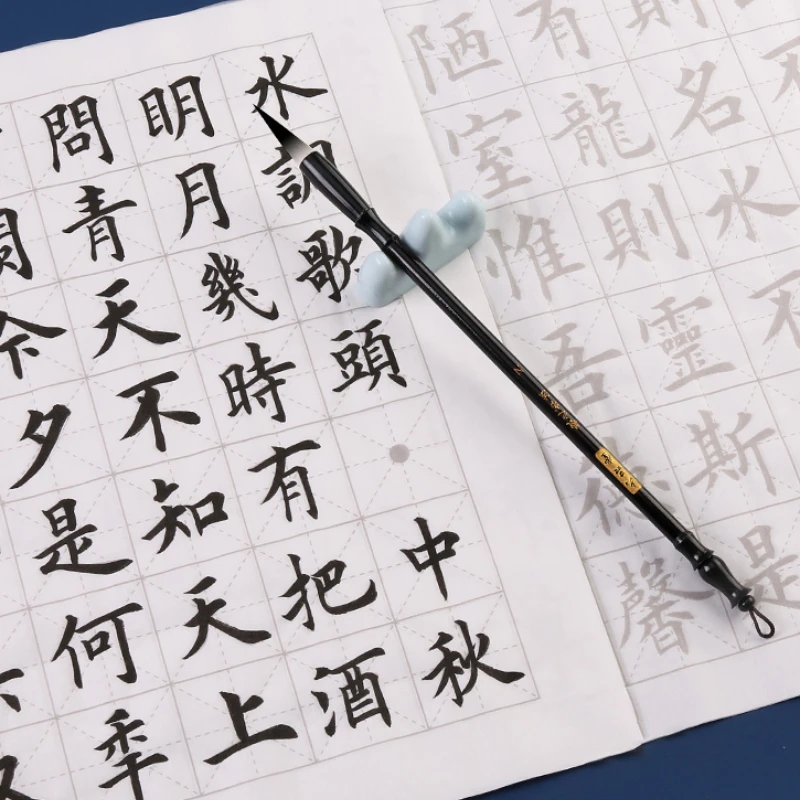 水調歌頭・中秋
明月幾時有把酒
問青天不知天上
今夕是何秊
則名水不
有龍則靈斯是
陋室惟吾德馨